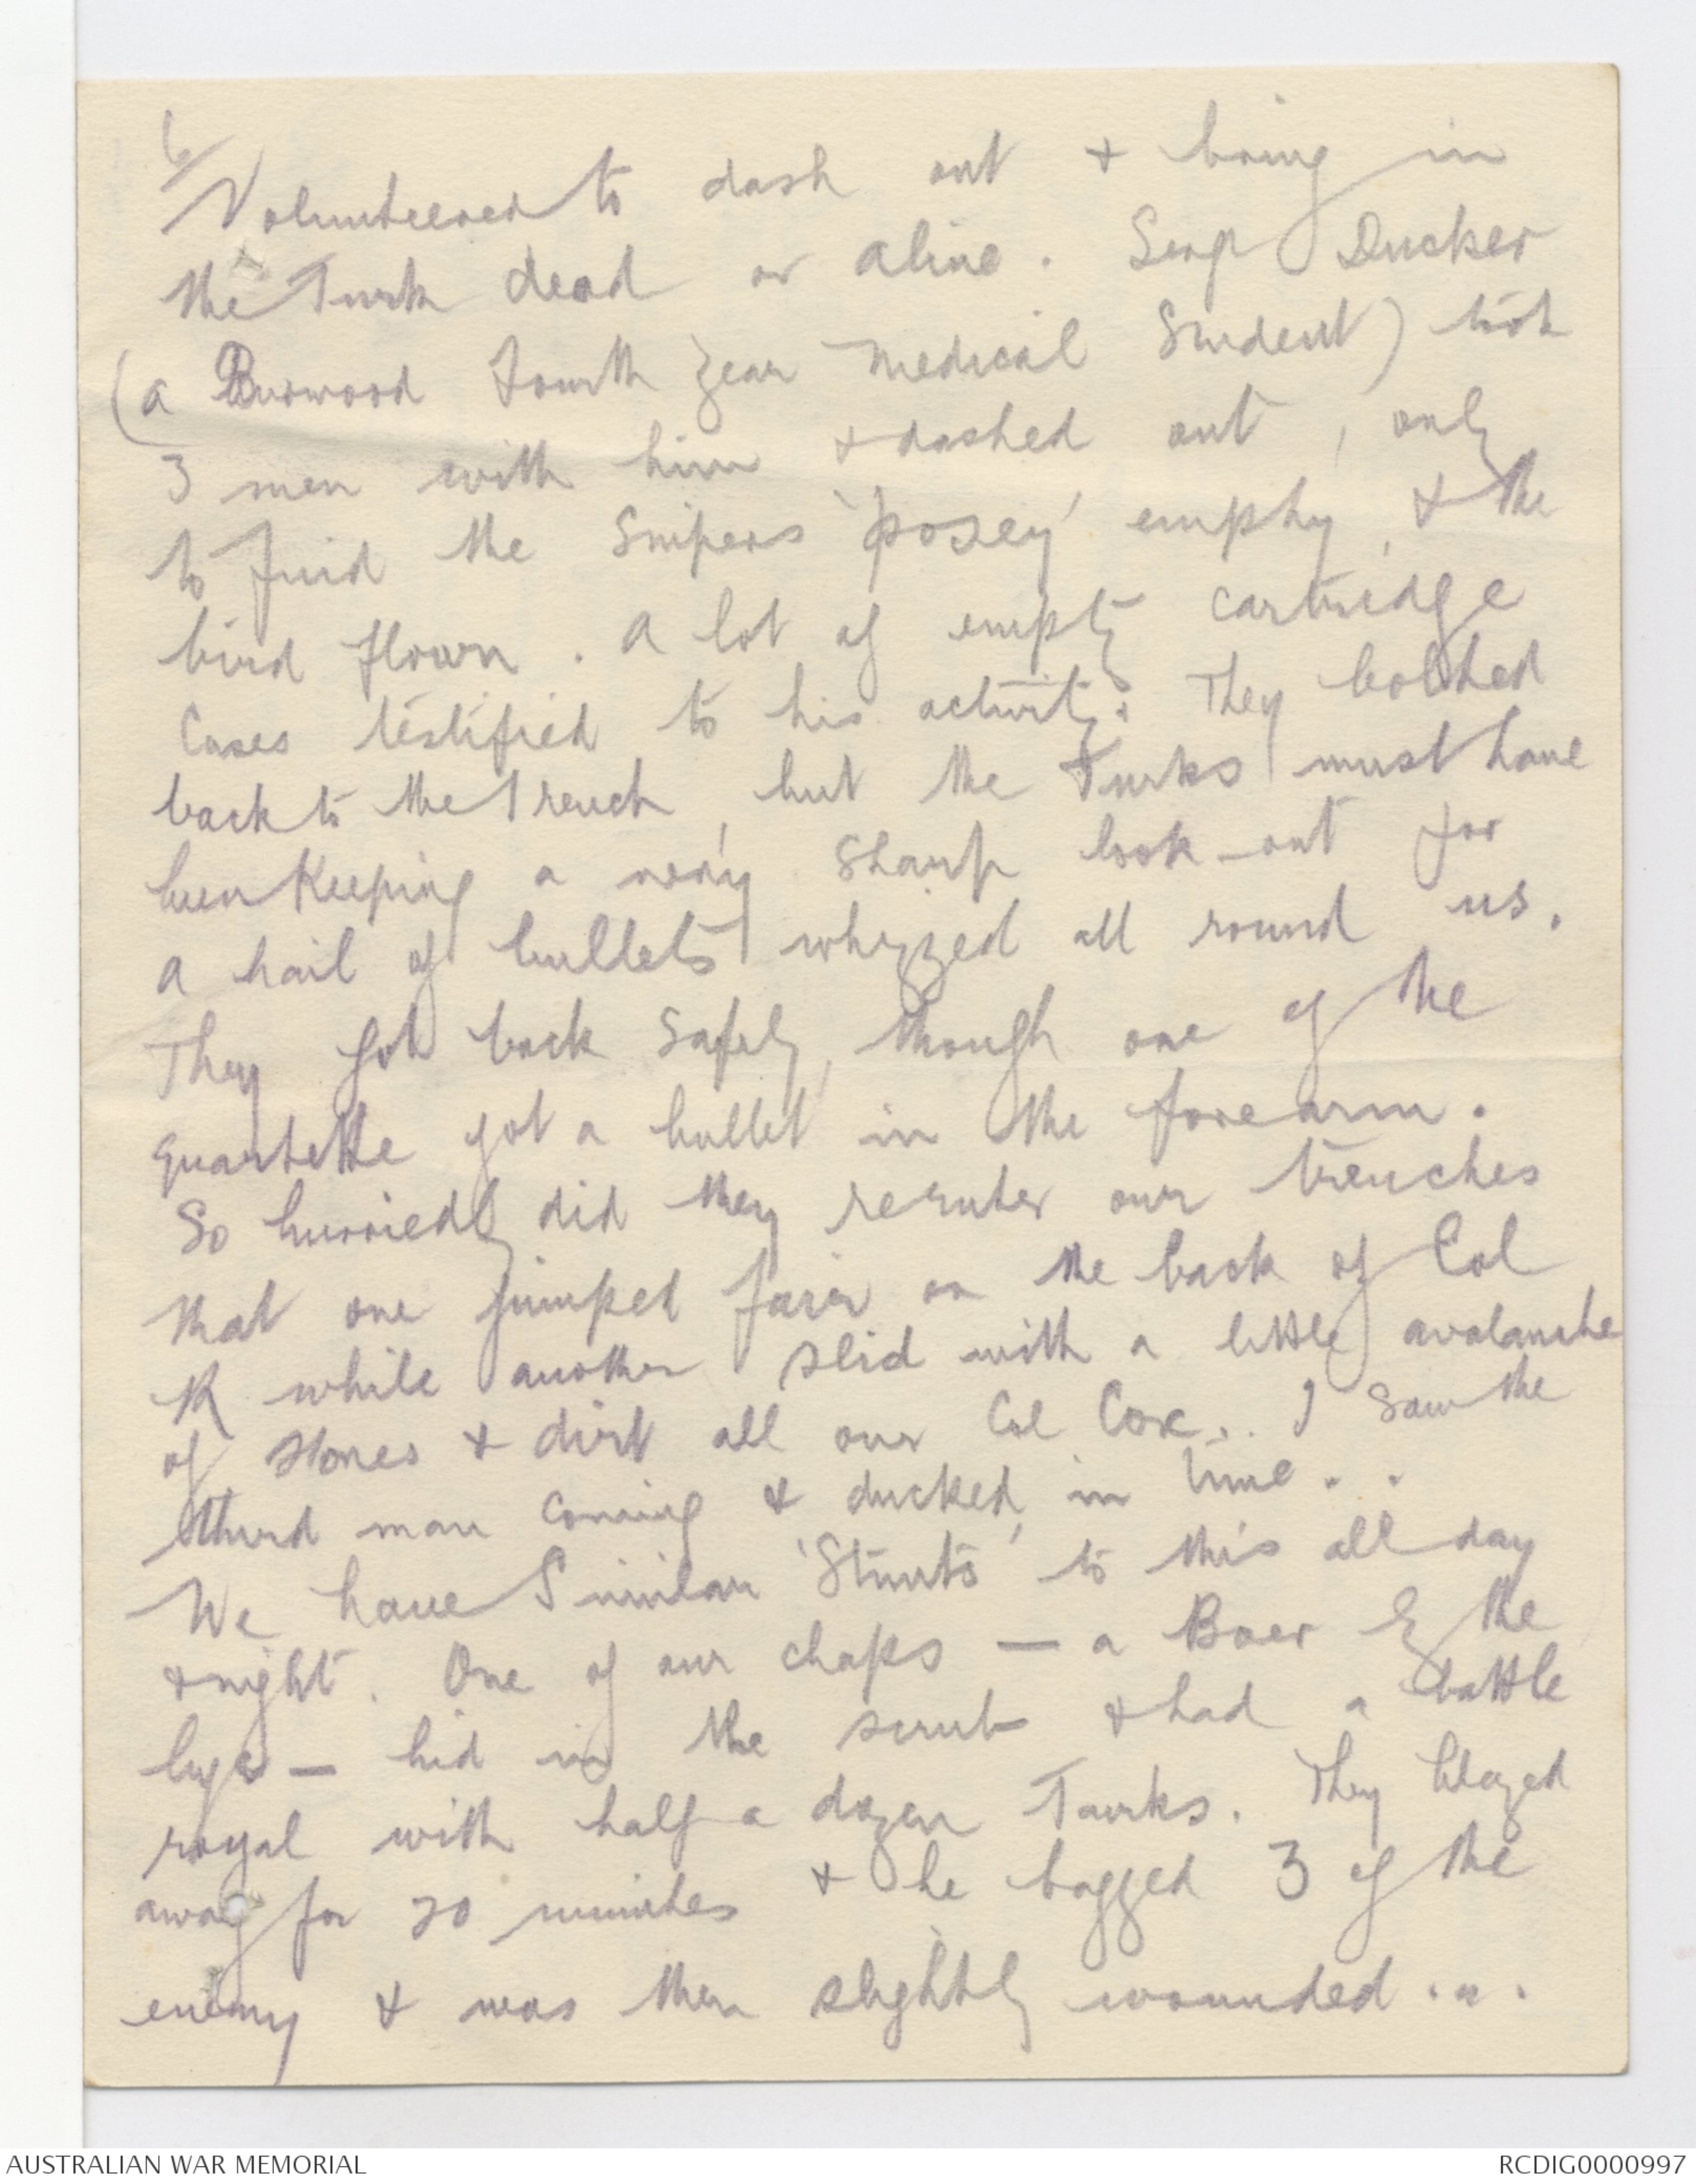 6/
Volunteered to dash out & bring in
the Turk dead or alive. Serg Ducker
(a Burwood fourth year medical Student) took
3 men with him & dashed out, only
to find the Snipers 'posey' empty, & the
bird flown. A lot of empty cartridge
Cases testified to his activity. They bolted
back to the trench, but the Turks must have
been keeping a very sharp look-out for
a hail of bullets whizzed all round us.
They got back safely, though one of the
quartette got a bullet in the forearm.
So hurriedly did they reenter our trenches
that one jumped fair on the back of Col
R while another slid with a little avalanche
of stones & dirt all over Col Cox.. I saw the
third man coming & ducked in time..
We have Similar 'Stunts' to this all day
& night. One of our chaps — a Boer by the
bye — hid in the scrub & had a battle
royal with half a dozen Turks. They blazed
away for 20 minutes & he bagged 3 of the
enemy & was then slightly wounded...
AUSTRALIAN WAR MEMORIAL
RCDIG0000997